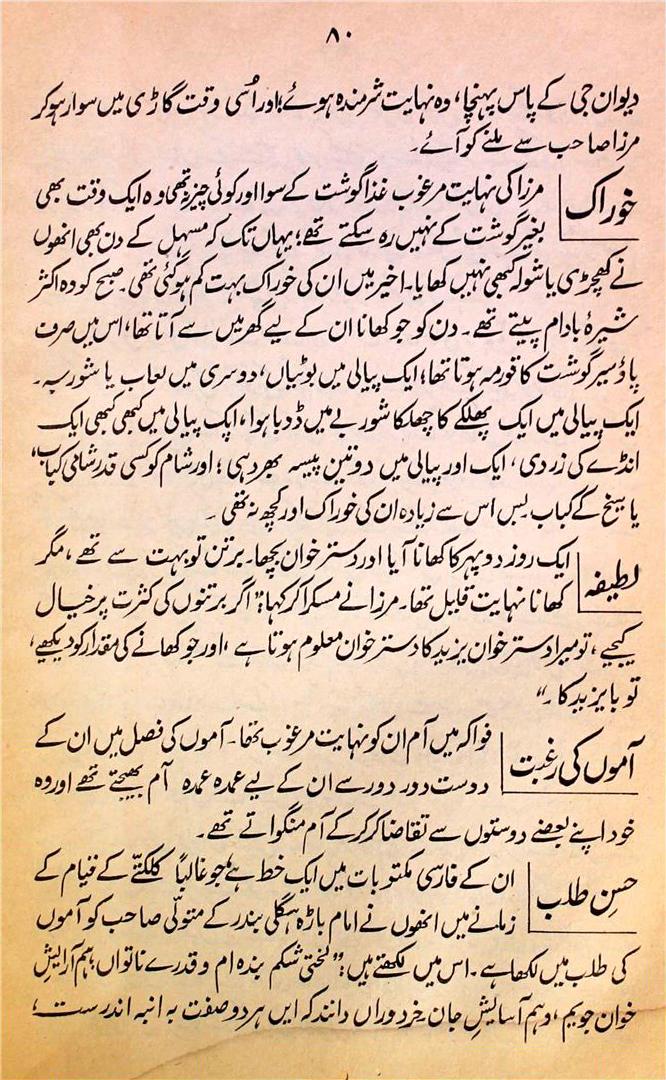 ۸۰
دیوان جی کے پاس پہنچا، وہ نہایت شرمندہ ہوئے؛ اور اُسی وقت گاڑی میں سوار ہو کر
مرزا صاحب سے ملنے کو آئے۔
خوراک
مرزا کی نہایت مرغوب غذا گوشت کے سوا اور کوئی چیز نہ تھی وہ ایک وقت بھی
بغیر گوشت کے نہیں رہ سکتے تھے؛ یہاں تک کہ مسہل کے دن بھی انھوں
نے کھچڑی یا شولہ کبھی نہیں کھایا۔ اخیر میں ان کی خوراک بہت کم ہو گئی تھی۔ صبح کو وہ اکثر
شیرۂ بادام پیتے تھے۔ دن کو جو کھانا ان کے لیے گھر میں سے آتا تھا، اس میں صرف
پاؤ سیر گوشت کا قورمہ ہوتا تھا؛ ایک پیالی میں بوٹیاں، دوسری میں لعاب یا شوربہ۔
ایک پیالی میں ایک پھلکے کا چھلکا شوربے میں ڈوبا ہوا، ایک پیالی میں کبھی کبھی ایک
انڈے کی زردی، ایک اور پیالی میں دو تین پیسہ بھر دہی؛ اور شام کو کسی قدر شامی کباب،
یا سیخ کے کباب بس اس سے زیادہ ان کی خوراک اور کچھ نہ تھی۔
لطیفہ
ایک روز دوپہر کا کھانا آیا اور دستر خوان بچھا۔ برتن تو بہت سے تھے، مگر
کھانا نہایت قلیل تھا۔ مرزا نے مسکرا کر کہا: "اگر برتنوں کی کثرت پر خیال
کیجیے، تو میرا دستر خوان یزید کا دستر خوان معلوم ہوتا ہے، اور جو کھانے کی مقدار کو دیکھیے،
تو بایزید کا۔"
آموں کی رغبت
فواکہ میں آم ان کو نہایت مرغوب تھا۔ آموں کی فصل میں ان کے
دوست دور دور سے ان کے لیے عمدہ عمدہ آم بھیجتے تھے اور وہ
خود اپنے بعضے دوستوں سے تقاضا کر کر کے آم منگواتے تھے۔
حسنِ طلب
ان کے فارسی مکتوبات میں ایک خط ہے، جو غالباً کلکتّے کے قیام کے
زمانے میں انھوں نے امام باڑہ ہگلی بندر کے متولّی صاحب کو آموں
کی طلب میں لکھا ہے۔ اس میں لکھتے ہیں: "لختی شکم بندہ ام و قدرے ناتواں؛ ہم آرایشِ
خوان جویم، و ہم آسایشِ جان۔ خرد وراں دانند کہ ایں ہر دو صفت بہ انبہ اندرست،